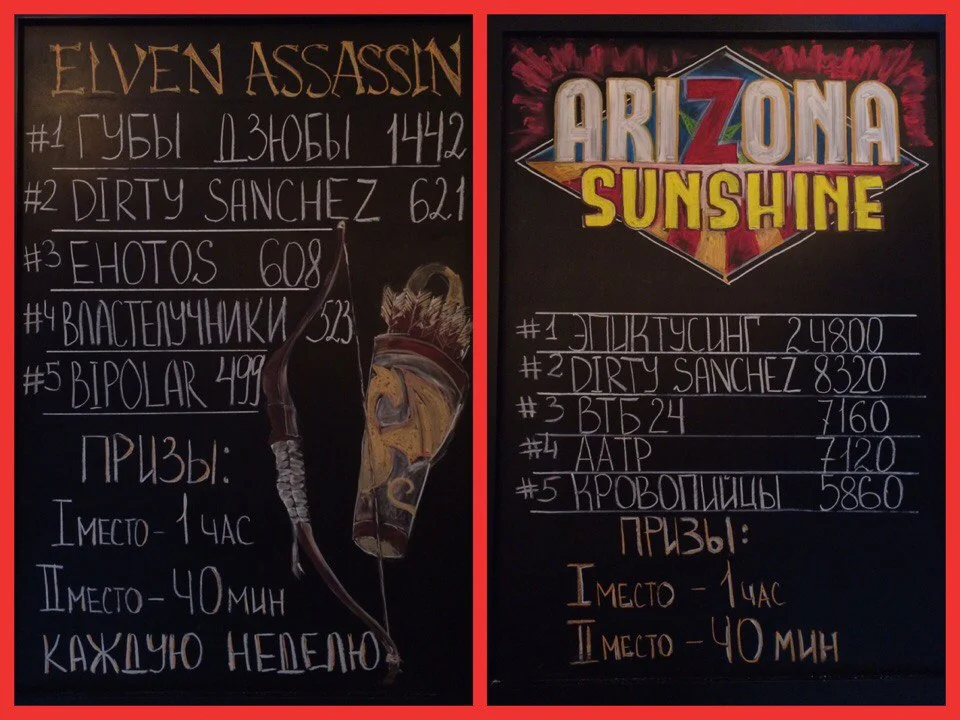 ELVEN ASSASSIN
#1 ГУБЫ ДЗЮБЫ 1442
#2 DIRTY SANCHEZ 621
#3 EHOTOS 608
#4 ВЛАСТЕЛУЧНИКИ 323
#5 BIPOLAR 499
ПРИЗЫ:
I МЕСТО - 1 ЧАС
II МЕСТО - 40 МИН
КАЖДУЮ НЕДЕЛЮ
ARIZONA
SUNSHINE
#1 ЭПИКТУСИНГ 24800
#2 DIRTY SANCHEZ 8320
#3 ВТБ 24 7160
#4 ААТР 7120
#5 КРОВОПИЙЦЫ 5860
ПРИЗЫ:
I МЕСТО - 1 ЧАС
II МЕСТО - 40 МИН